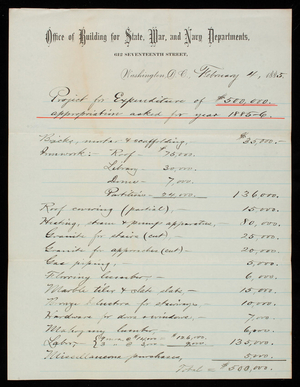 Office of Building for State, War, and Navy Departments,
612 SEVENTEENTH STREET,
Washington, D.C. February 4, 1885.
Project for Expenditure of $500,000.
appropriation asked for year 1885-6.
Bricks, mortar & scaffolding, $35,000.-
Ironwork:- Roof - $75,000.
Library - 30,000.
Dome - 7,000.
Partition - 24,000.- 136,000
Roof covering (partial), - 15,000.
Heating, steam & pumps apparatus, 80,000
Granite for stairs (cut) - 25,000.-
Granite for approaches (cut) - 20,000
Gas piping, - 5,000.
Flooring lumber, - 6,000.
Marble tiles & slate slabs - 15,000.
Bronze balusters for stairways - 10,000.
Hardware for doors & windows, - 7,000.
Mahogany lumber, - 6,000.
Labor, - 135,000.
Miscellaneous purchases, 5,000.
Total = $500,000.